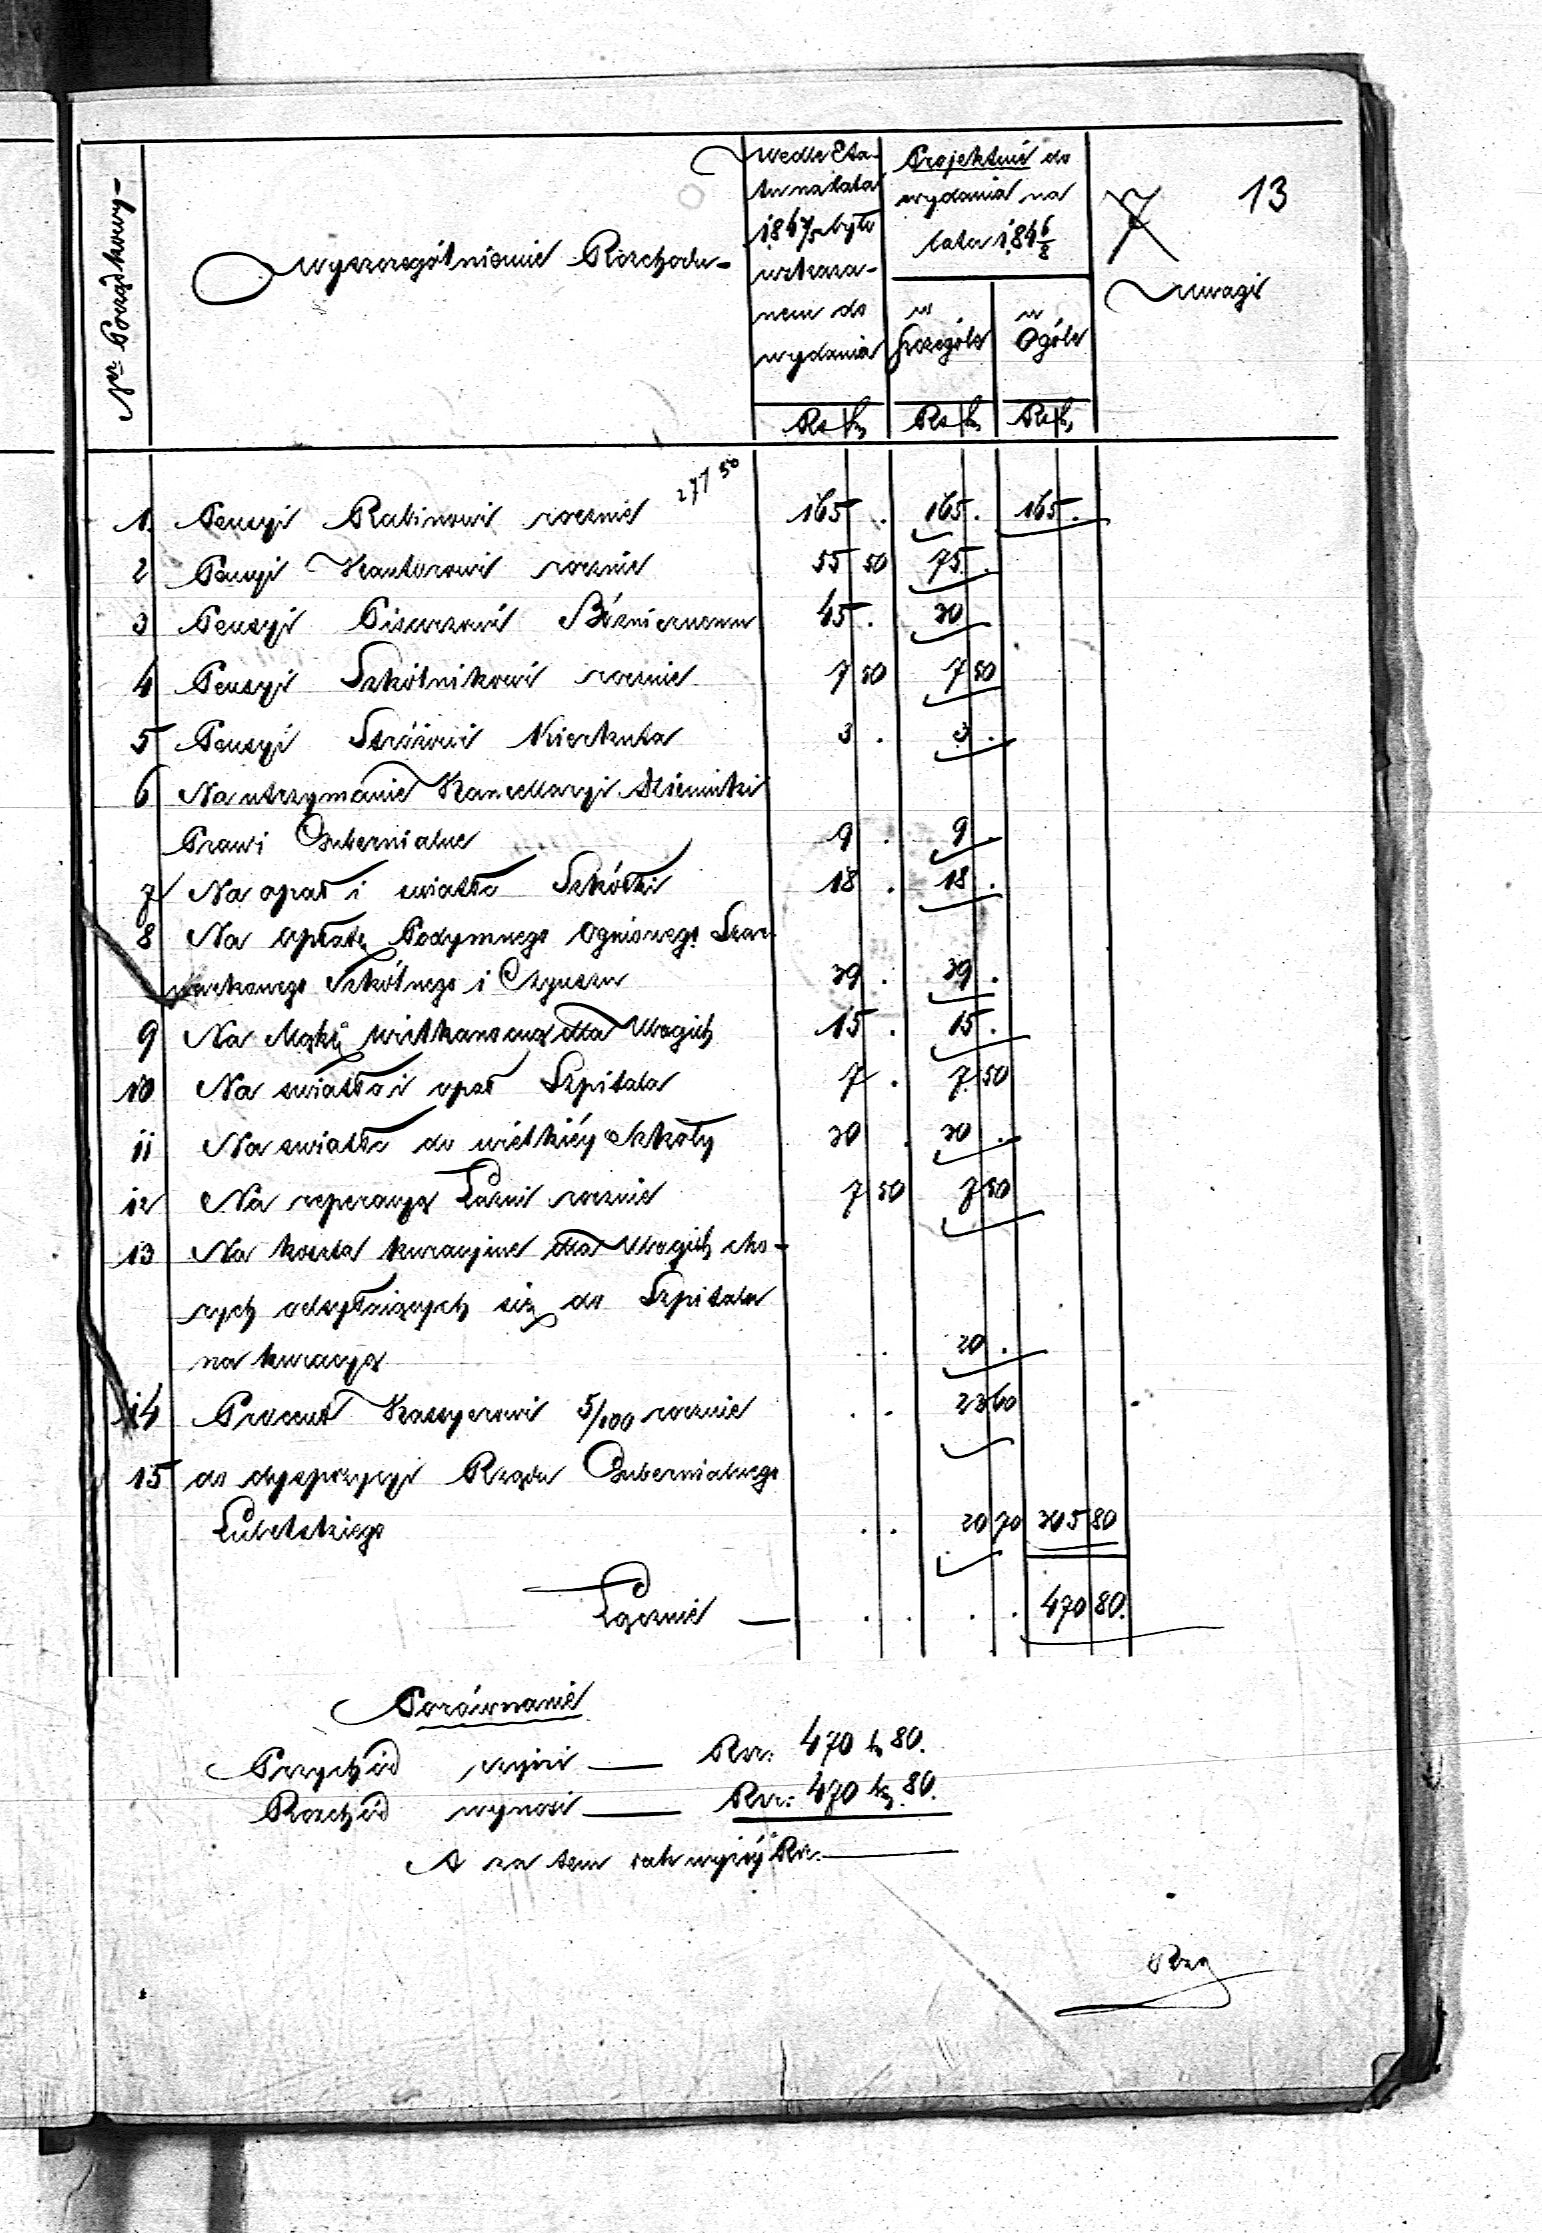 13
7
Ner Porządkowy
Wyszczególnienie Rozchodu
Wedle Eta-
tu na lata
184 3/5 było
wskaza-
nem do
wydania
Projektuie do
wydania na
lata 184 6/8
w
Szczególe
w
Ogóle
Uwagi
Rs k Rs k Rs k
277 50
1. Pensyi Rabinowi rocznie 165 . 165 . 165 .
2 Pensyi Kantorowi rocznie 55 50 75 .
3 Pensyi Pisarzowi Bóźnicznemu 45 . 30
4 Pensyi Szkólnikowi rocznie 7 50 7 50
5 Pensyi Stróżowi Kierkuta 3 . 3 .
6 Na utrzymanie Kancellaryi Dzienniki
Praw i Gubernialne 9 . 9 .
7 Na opał i swiatło Szkółki 18 . 18 .
8 Na opłatę Podymnego Ogniowego Szar-
warkowego Szkólnego i Czynszu 39 . 39 .
9 Na Mąkę wielkanocną dla Ubogich 15 . 15 .
10 Na swiatło i opał Szpitala 7 . 7 50
11 Na swiatło do wielkiéy Szkoły 30 . 30 .
12 Na reperacyą Łazni rocznie 7 50 7 50
13 Na koszta kuracyine dla Ubogich cho-
rych odsyłaiących się do Szpitala
na kuracyą . . 20 .
14 Procent Kassyerowi 5/100 rocznie . . 23 60
15 do dyspozycyi Rządu Gubernialnego
Lubelskiego . . 20 70 305 80
Łącznie — . . . . 470 80.
Porównanie
Przychód wynosi — Rsr: 470 k 80.
Rozchód wynosi — Rsr: 470 k 80.
A za tem Rsr. —